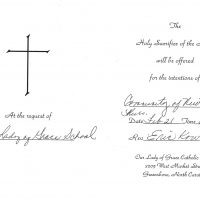 At the request of
Lady of Grace School
The
Holy Sacrifice of the
will be offered
for the intentions of
Community of
Date Feb 21 Time
Re: Eric
Our Lady of Grace Catholic
2205 West Market Street
Greensboro, North Carol